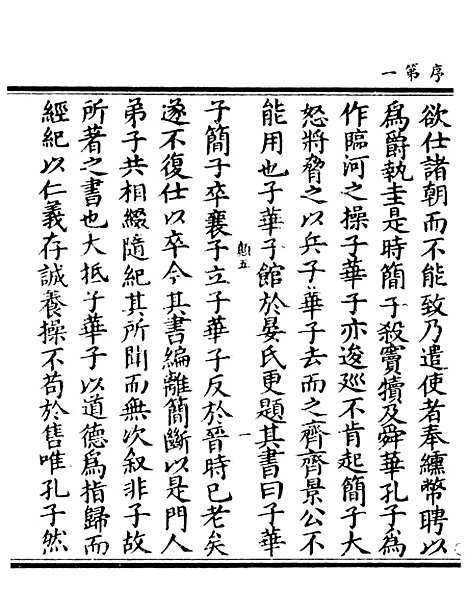 序第一
欲仕諸朝而不能致乃遣使者奉纁幣聘以
為爵執圭是時簡子殺竇犢及舜華孔子為
作臨河之操子華子亦逡廵不肯起簡子大
怒將脅之以兵子華子去而之齊齊景公不
能用也子華子館於晏氏更題其書曰子華
子簡子卒襄子立子華子反於晉時已老矣
遂不復仕以卒今其書編離簡斷以是門人
弟子共相綴隨紀其所聞而無次叙非子故
所著之書也大抵子華子以道德為指歸而
經紀以仁義存誠養操不苟於售唯孔子然
五
一